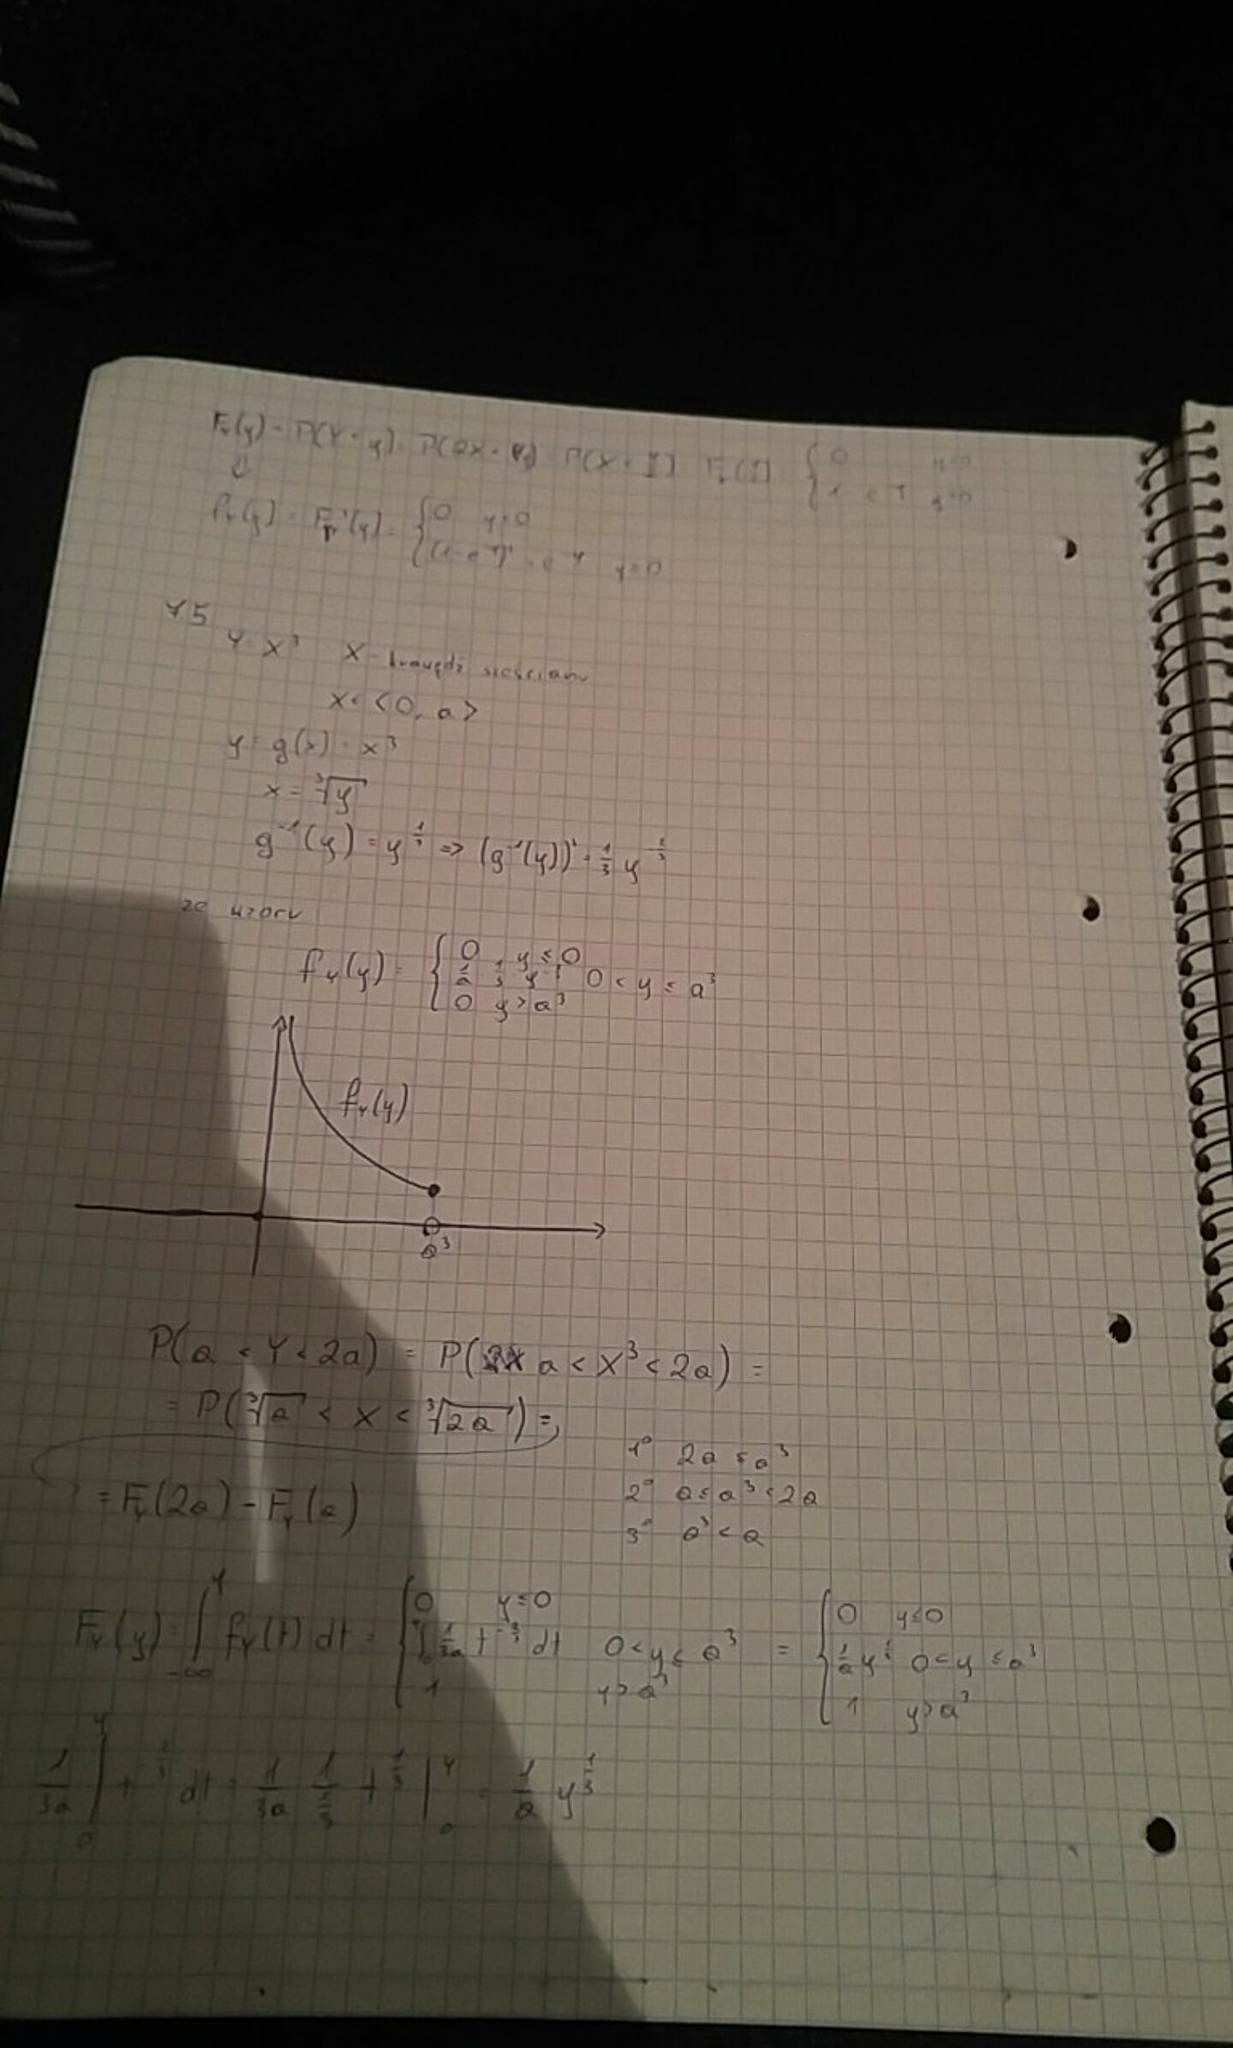 F_Y(y) = P(Y < y) = P(X <
f_Y(y) = F_Y'(y) = { 0 y
75
Y = X³ X - krawędź sześcianu
X ∈ <0, a>
y = g(x) = x³
x = ∛y
g⁻¹(y) = y^(1/3) => (g⁻¹(y))' = 1/3 y^(-2/3)
ze wzoru
f_Y(y) = { 0 , y ≤ 0
1/a 1/3 y 0 < y ≤ a³
0 y > a³
f_Y(y)
a³
P(a < Y < 2a) = P(a < X³ < 2a) =
= P(∛a < X < ∛2a) =
= F_Y(2a) - F_Y(a)
1° 2a ≤ a³
2° a ≤ a³ < 2a
3° a³ < a
F_Y(y) = ∫_{-∞}^{y} f_Y(t) dt = { 0 y ≤ 0 ; ∫ 1/3a t^(-2/3) dt 0 < y ≤ a³ ; 1 y > a³ = { 0 y ≤ 0 ; 1/a y^(1/3) 0 < y ≤ a³ ; 1 y > a³
1/3a ∫_0^y t dt = 1/3a 1/(1/3) t^(1/3) |_0^y = 1/a y^(1/3)